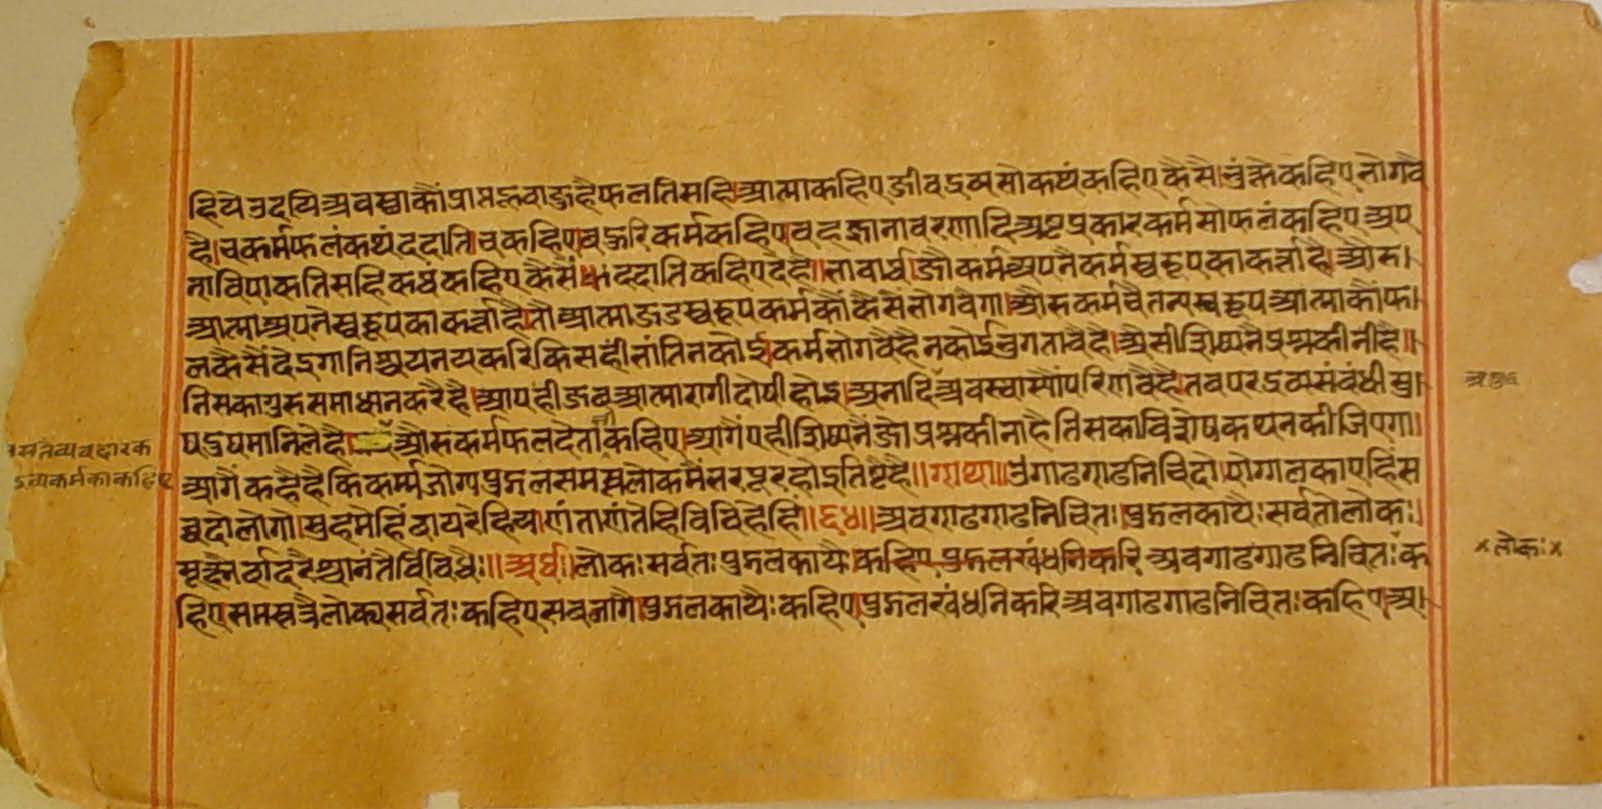 हिये उदयि अवस्थाकौं प्राप्त हूवा जु है फल तिसहि। आत्मा कहिए जीवद्रव्य सो कथं कहिए कैसे। भुंक्ते कहिए भोगवै
है। च कर्मफलं कथं ददाति। च कहिए। बहुरि कर्म कहिए। वह ज्ञानावरणादि अष्ट प्रकार कर्म सो फलं कहिए अप
ना विपाक तिसहि कथं कहिए कैसे ददाति कहिए दे है॥ भावार्थ। जौ कर्म अपनै कर्मस्वरूपका कर्त्ता है। औरु।
आत्मा अपनै स्वरूपका कर्त्ता है। तौ आत्मा जडस्वरूप कर्मकौं कैसे भोगवैगा। औरु कर्म चैतन्यस्वरूप आत्माकौं फ।
ल कैसें देइगा निश्चयनय करि किसही भांति न कोई कर्म भोगवै है न कोई भुगतावै है। अैसी शिष्यनै प्रश्न कीनी है॥
तिसका गुरु समाधान करै है। आपही जब आत्मा रागी दोषी होइ। अनादि अवस्थास्यौं परिणवै है। तब परद्रव्य संबंधी सु।
षदुष मानि ले है। औरु कर्म फल देता कहिए। आगैं एही शिष्यनैं जो प्रश्न कीना है तिसका विशेष कथन कीजिएगा।
आगैं कहै है कि कर्म्मजोग्य पुद्गल समस्त लोकमैं भरपूर होइ तिष्टै है॥ गाथा॥ उगाढगाढनिचिदो। पोग्गलकाएहिं स
व्वदो लोगो। सुहमेहिं बायरेहिं य। णंताणंतेहिं विविहेहिं॥ ६४॥ अवगाढगाढनिचितः। पुद्गलकायैः सर्वतो लोकः।
सूक्ष्मैर्बादरैश्चानंतैर्विविधैः॥ अर्थ। लोकः सर्वतः पुद्गलकायैः। कहिए पुद्गलखंधनिकरि अवगाढगाढनिचितः क
हिए समस्त त्रैलोक्य सर्वतः कहिए सब जागै। पुद्गलकायैः कहिए। पुद्गलखंधनिकरि अवगाढगाढनिचितः कहिए। अ।
द्रव्यकर्मका कहिए
× लोकः ×